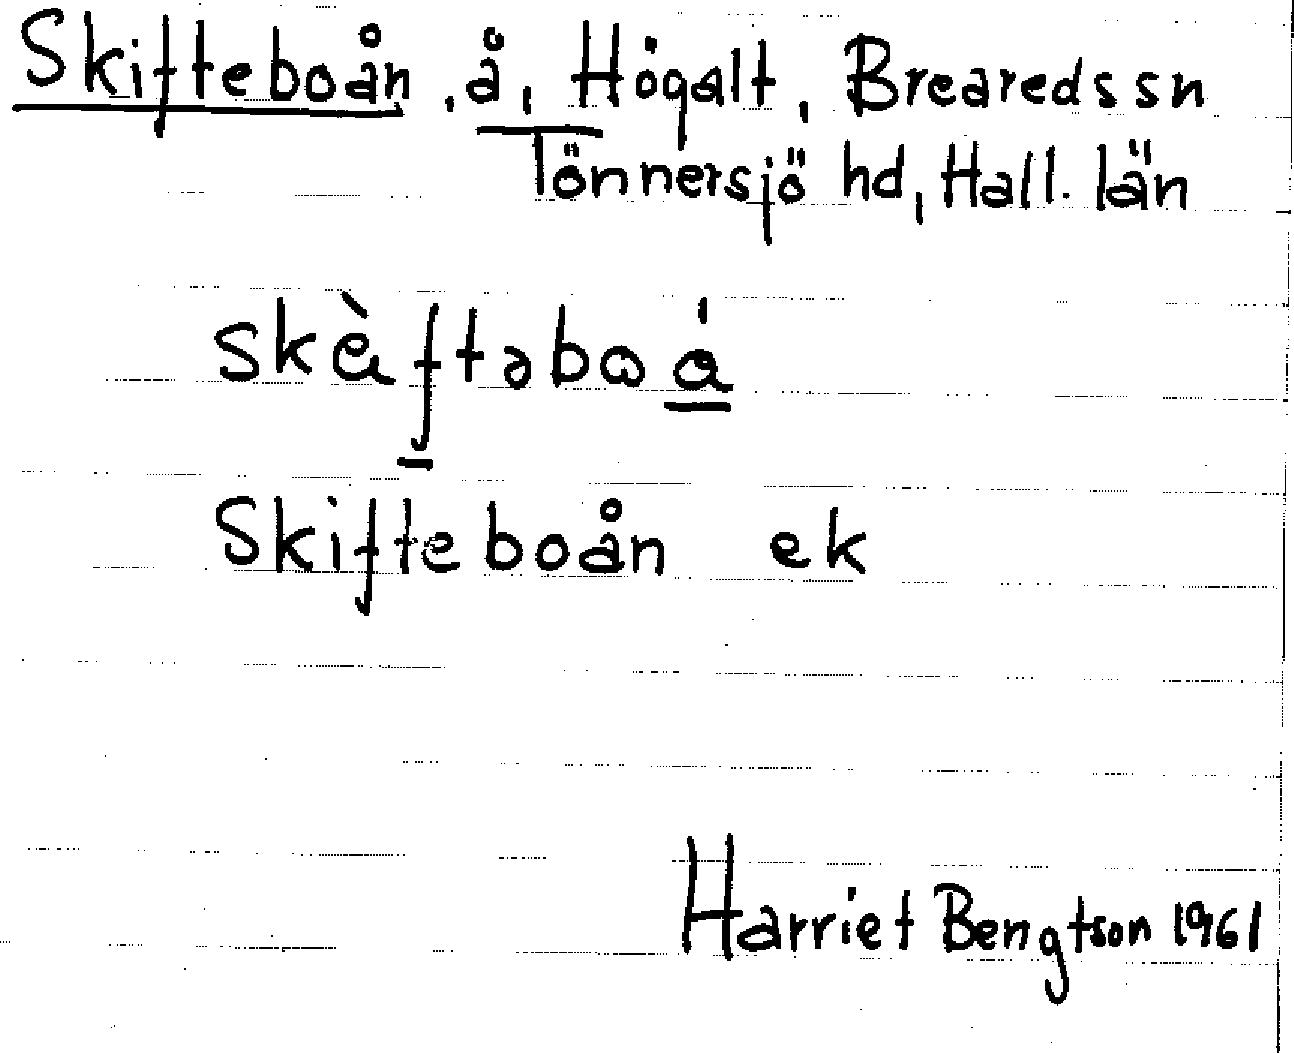 Skifteboån, å, Högalt, Brearedssn
Tönnersjö hd, Hall. län
skæ̀ftəbɷá
Skifteboån ek
Harriet Bengtson 1961